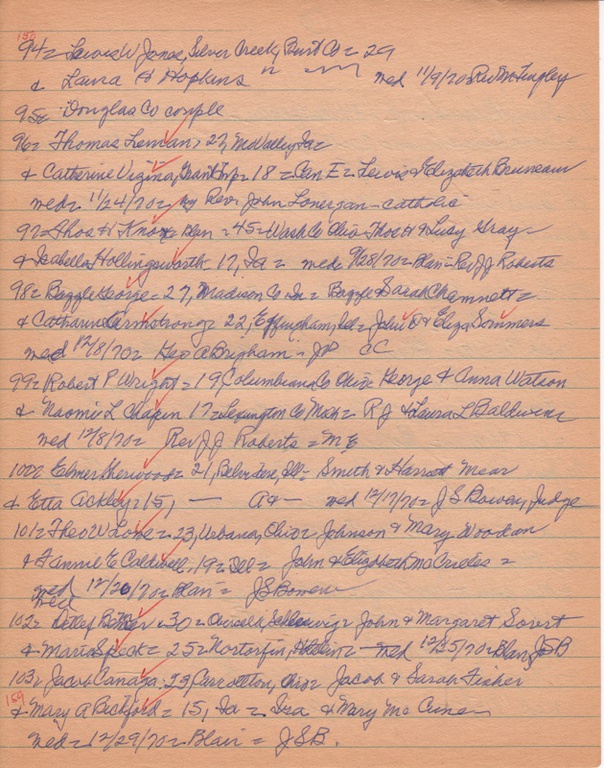 150
94= Lewis W Jones, Silver Creek, Burt Co = 29
& Laura A Hopkins " wed 11/9/70= Rev McTingley
95= Douglas Co couple
96= Thomas Leman, 27, McValley, Ia=
& Catherine Vizina, Grant Twp= 18 = Can E = Lewis & Elizabeth Bruneau
wed= 11/24/70= by Rev. John Lonergan - Catholic
97= Thos H Knox Blan = 45 = Wash Co Ohio= Thos H & Lucy Gray=
& Isabella Hollingsworth - 17, Ia = wed= 9/28/70= Blair= Rev J J Roberts
98= Boggle George = 27, Madison Co In= Boggle & Sarah Chamnett=
& Catharine Armstrong = 22, Effingham, Ill= John D & Eliza Sommers
wed 12/8/70= Geo A Brigham = JP CC
99= Robert P Wright = 19, Columbiana Co Ohio= George & Anna Watson
& Naomi L Chapin 17= Lexington Co Mich= R J & Laura L Baldwin=
wed 12/8/70= Rev J J Roberts = ME
100= Elmer Sherwood = 21, Belvidere, Ill= Smith & Harriott Mear
& Etta Ackley = 15, — A & — wed 12/17/70= J S Bowen, Judge
101= Theo W Lone = 23, Urbana, Ohio= Johnson & Mary Woodan
& Fannie E Caldwell - 19= Ill = John & Elizabeth McCreles =
wed 12/20/70= Blair = J S Bowen
wed
102= Detlef = 30 = = John & Margaret Sorert
& Maria Speck = 25= Nortorfin, Holstein = wed 12/25/70= Blair, JSB
103= Jacob Canaga. 23, Carrollton, Ohio= Jacob & Sarah Fisher
159
& Mary A Bickford = 15, Ia = Ira & Mary Mc Cune=
wed= 12/29/70= Blair = JSB.